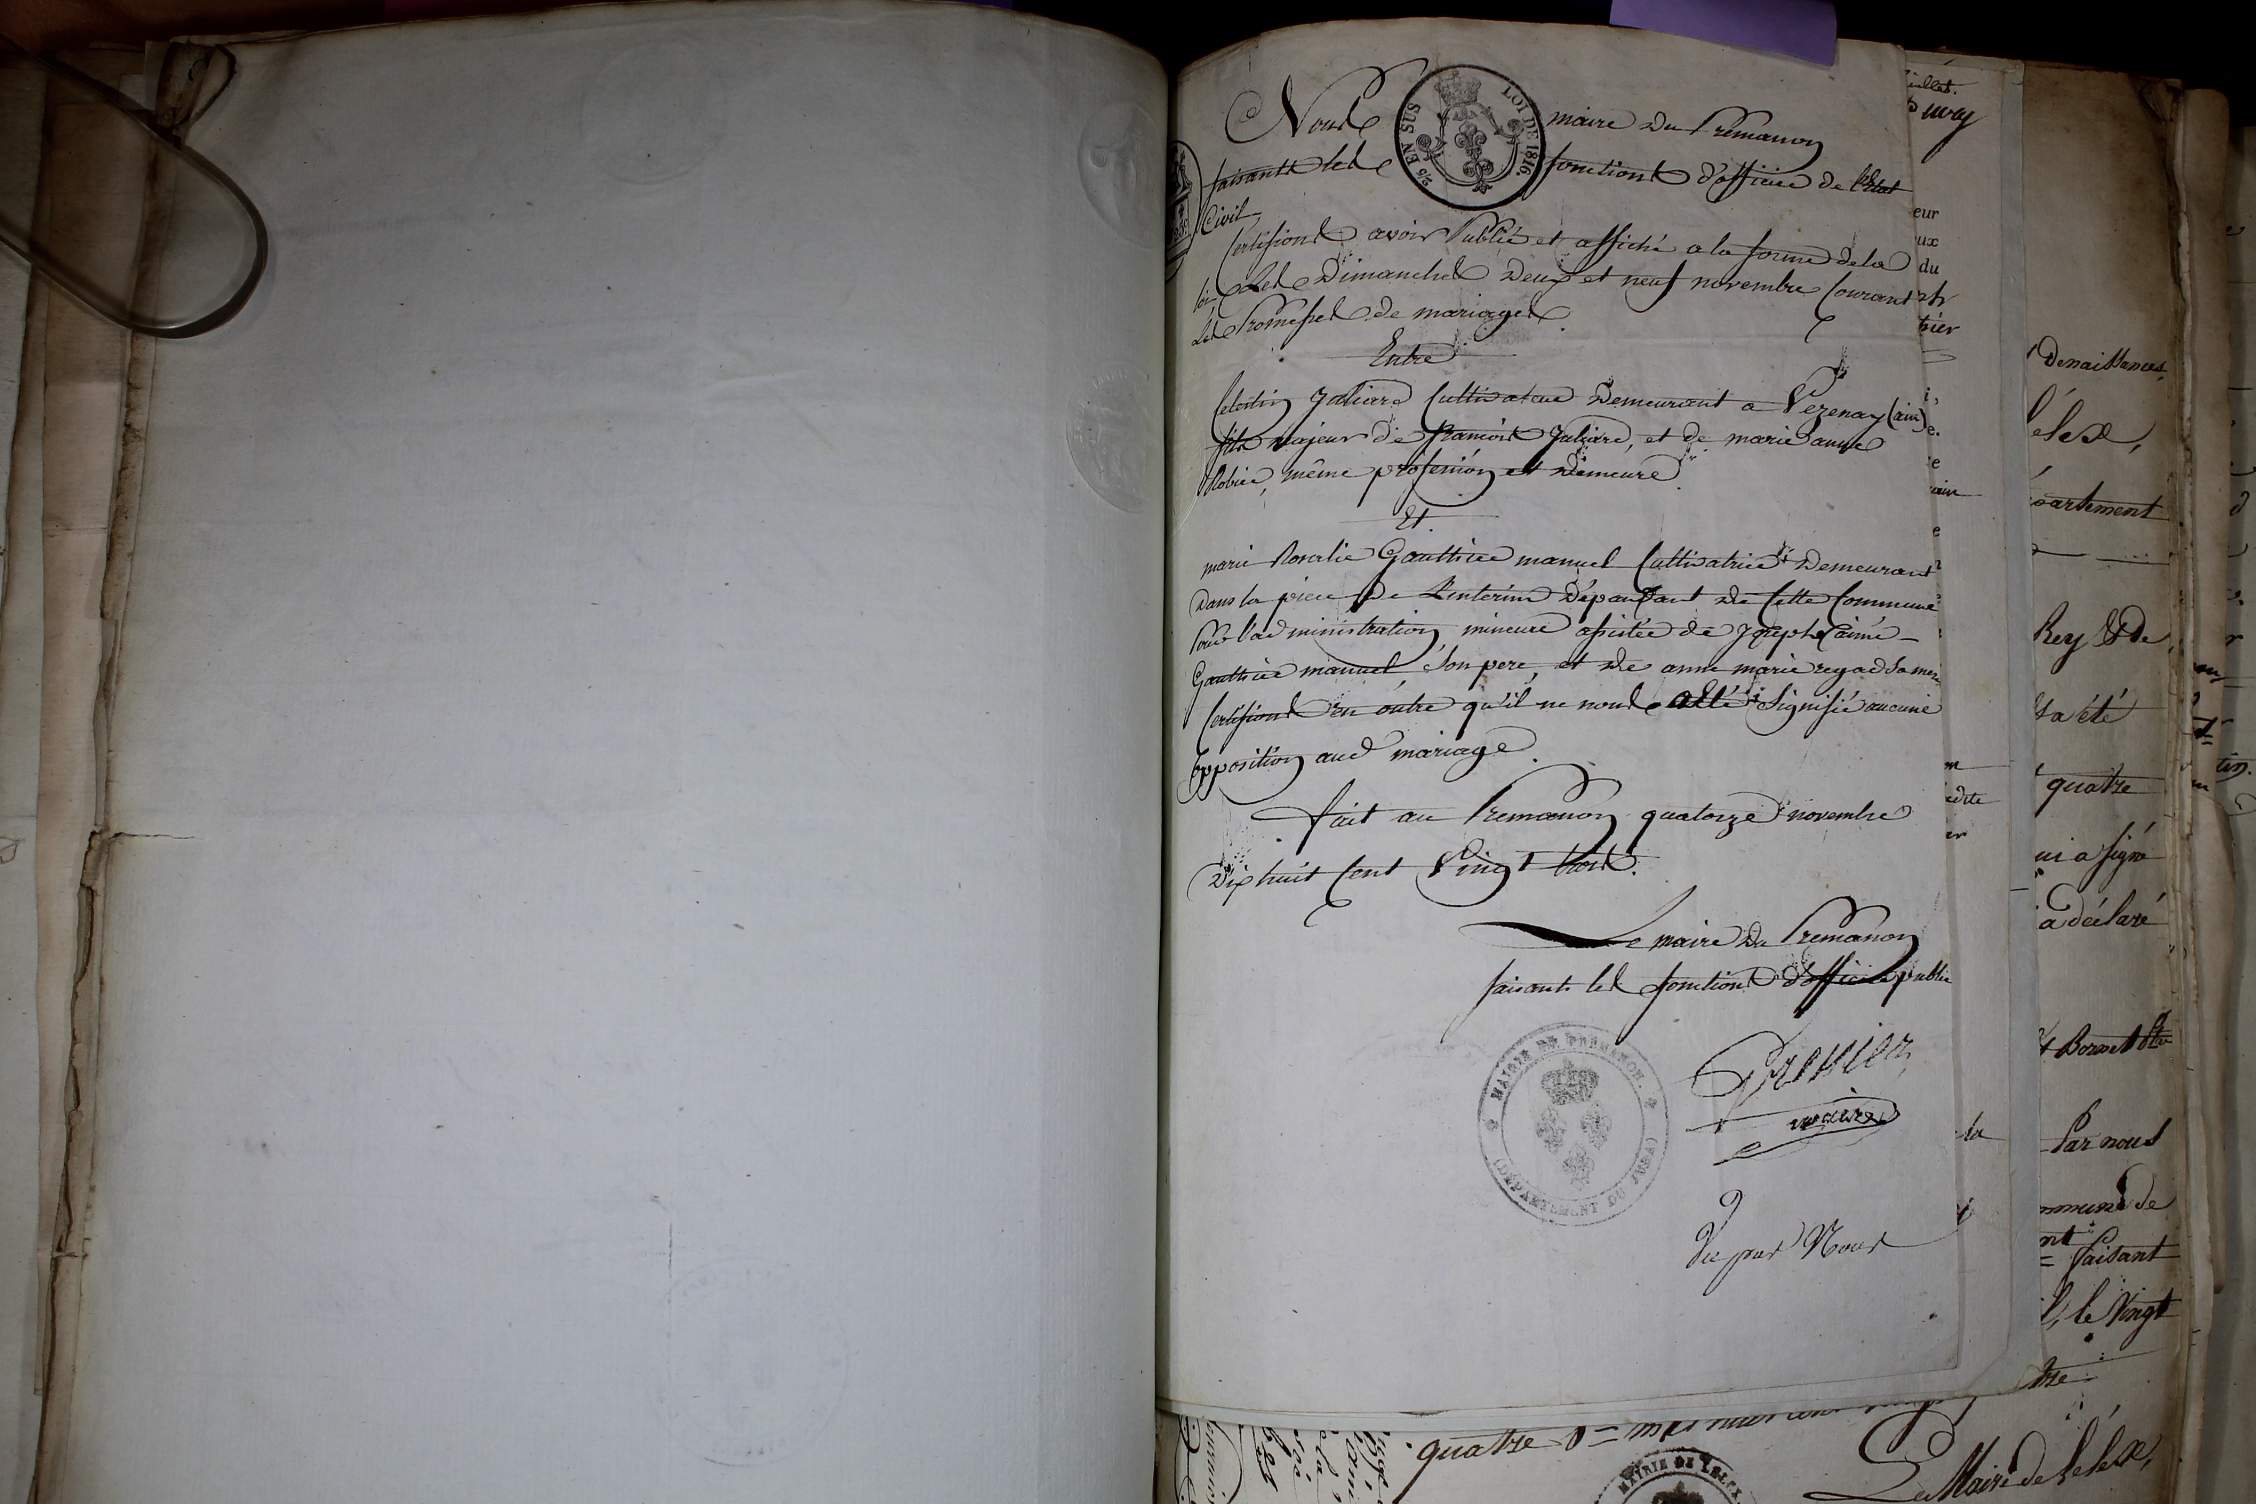 Nous maire du Prémanon
2/6 EN SUS LOI DE 1816.
faisants les fonctions d'officier de l'Etat
Civil
Certifions avoir Publié et affiché a la forme de la
loi Les Dimanches Deux et neuf novembre Courant
Les Promesses de mariages
Entre
Celestin Juliard Cultivateur Demeurant a Vezenay (ain)
fils majeur de francois Juliard, et de marie anne
même profession et Demeure
Et
marie Rosalie Gauthier manuel Cultivatrice Demeurant
Dans la de L'interim Dépandant de Cette Commune
Pour l'administration, mineure assistée de Joseph aimé
Gauthier manuel, Son pere, et De anne marie regad Sa mere
Certifions en outre qu'il ne nous a Eté Signifié aucune
opposition aud mariage.
fait au Premanon quatorze novembre
Dix huit Cent Vingt trois.
Le maire du Premanon
faisants les fonctions d'officier public
Grenier
maire
MAIRIE DE PREMANON.
(DÉPARTEMENT DU JURA)
Vu par Nous
eur
ux
du
Denaissances,
Lélex,
partement
Rey
sa été
quatre
ui a signé
a déclaré
Par nous
mmune de
faisant
le Vingt
quatre
MAIRIE DE LELEX
Le Maire de Lelex,